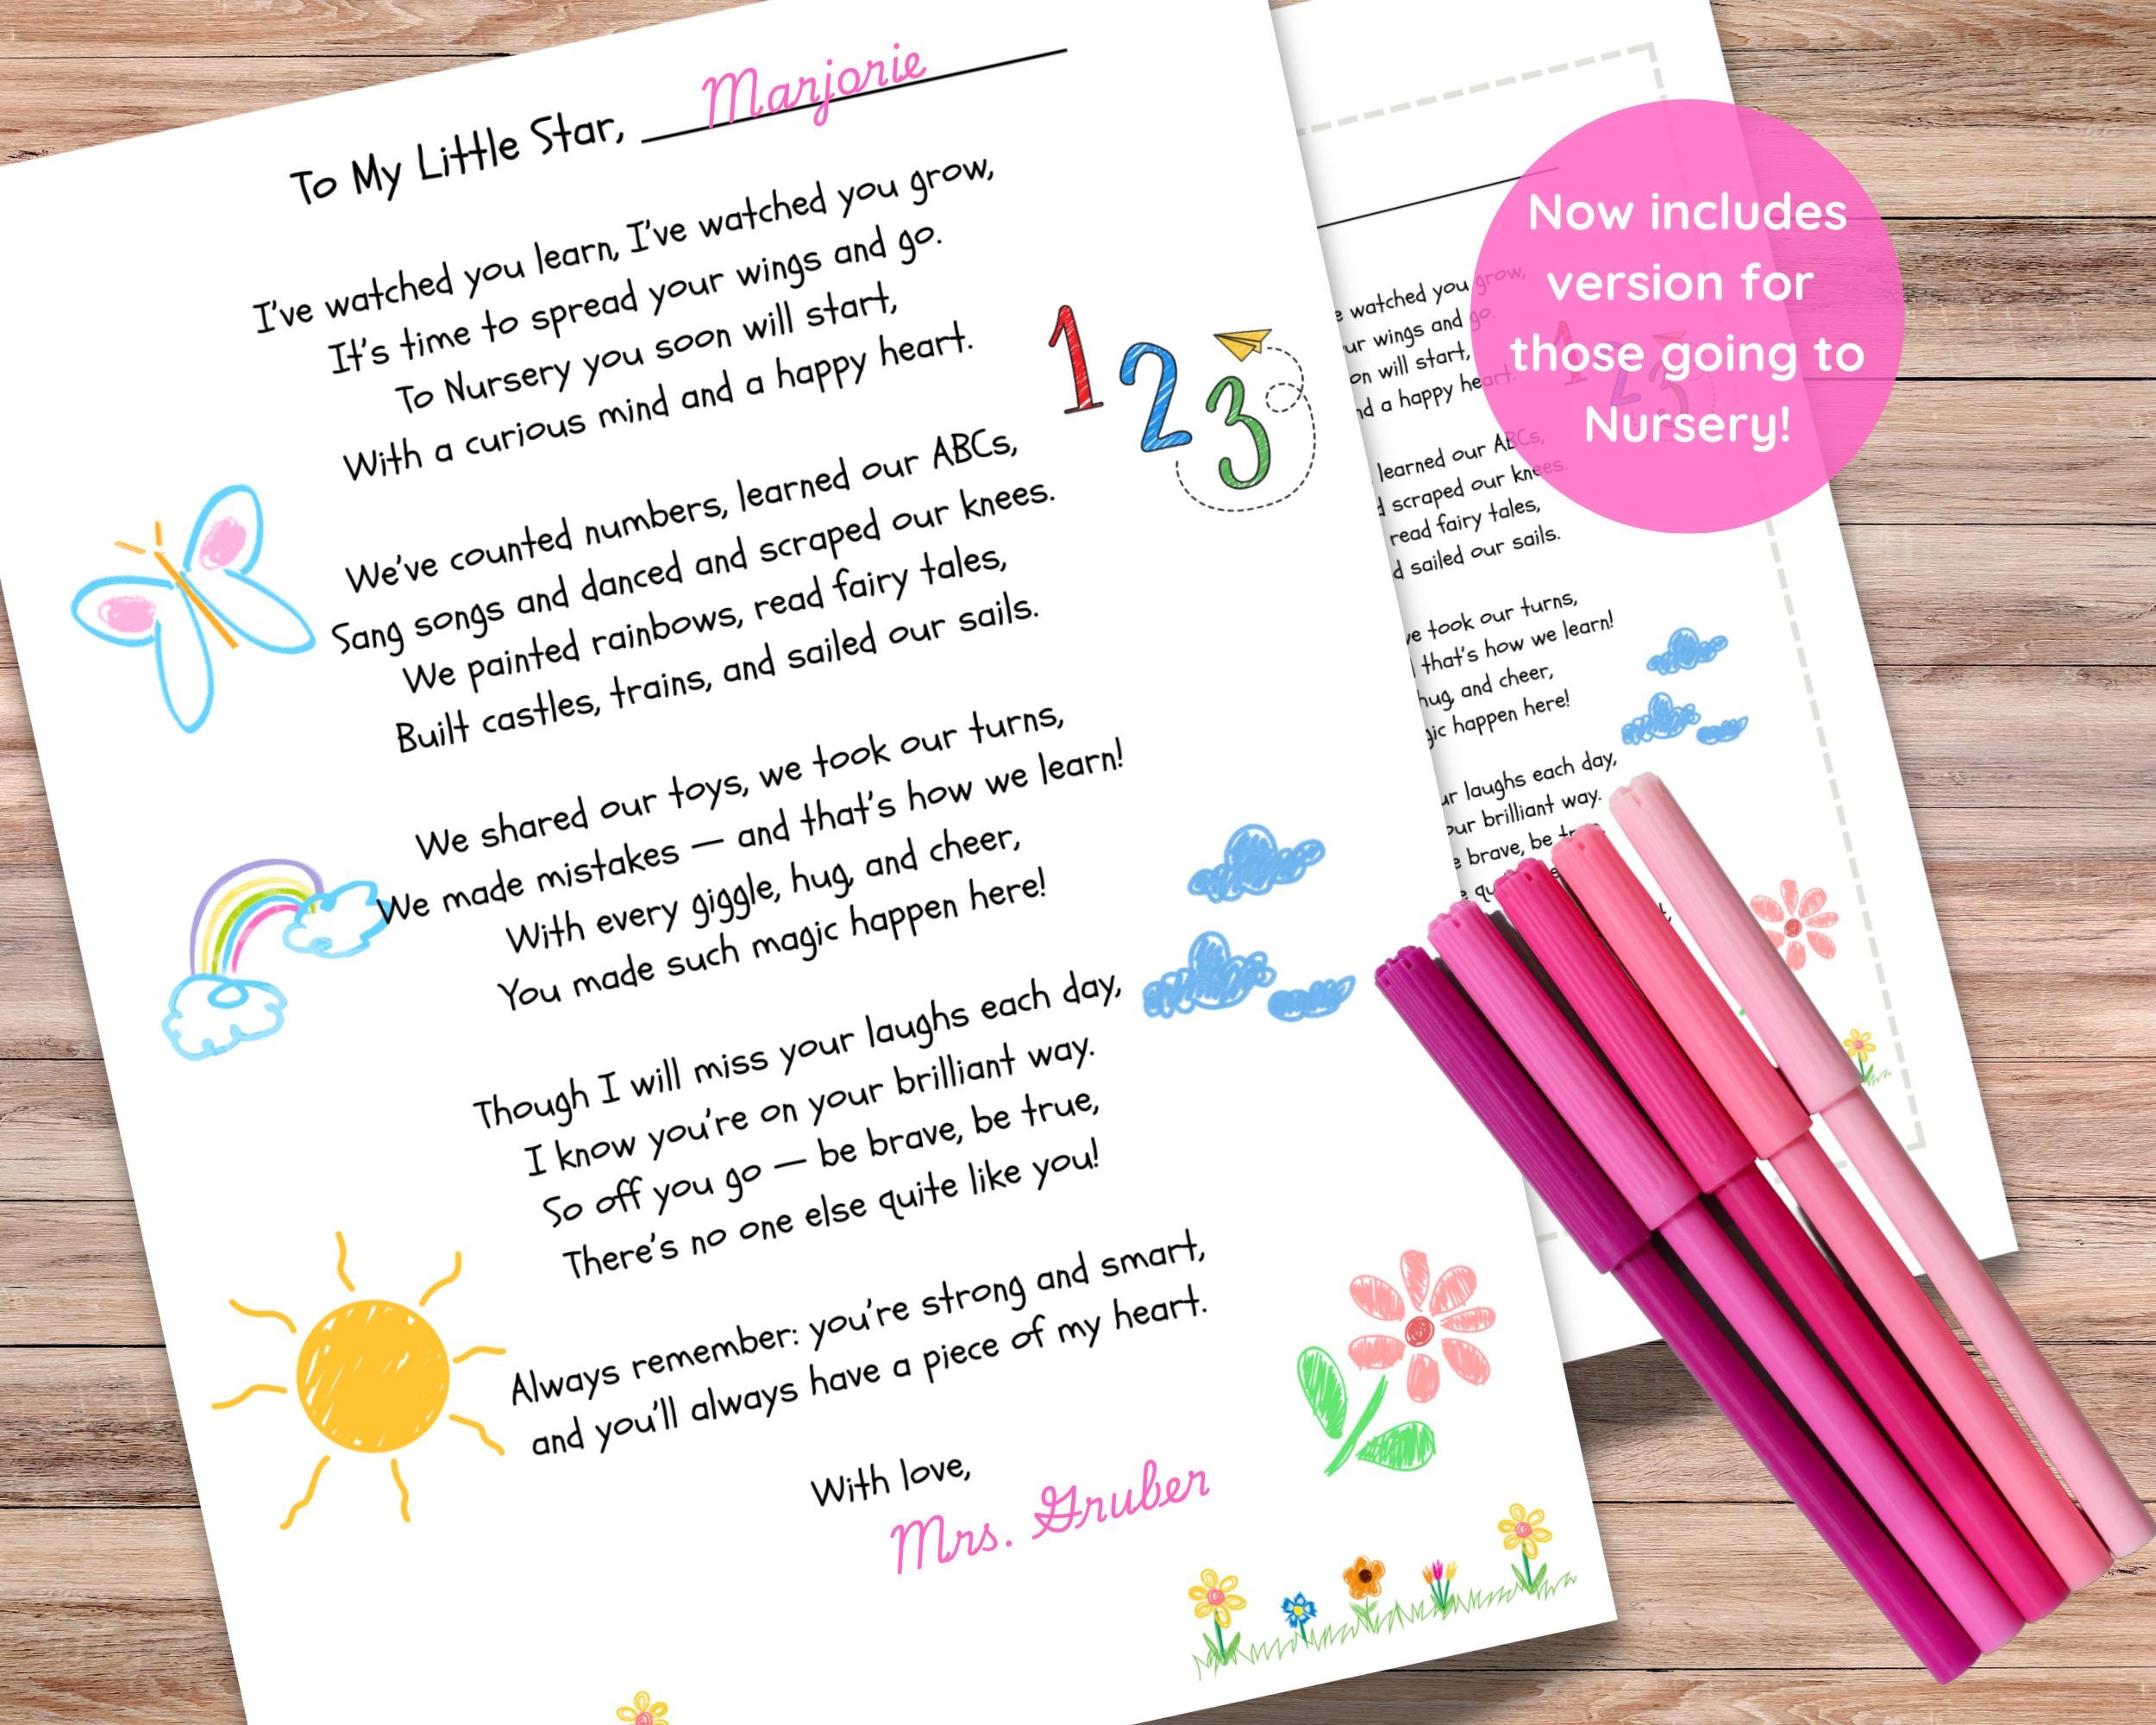 To My Little Star, Marjorie
I've watched you learn, I've watched you grow,
It's time to spread your wings and go.
To Nursery you soon will start,
With a curious mind and a happy heart.
We've counted numbers, learned our ABCs,
Sang songs and danced and scraped our knees.
We painted rainbows, read fairy tales,
Built castles, trains, and sailed our sails.
We shared our toys, we took our turns,
We made mistakes — and that's how we learn!
With every giggle, hug, and cheer,
You made such magic happen here!
Though I will miss your laughs each day,
I know you're on your brilliant way.
So off you go — be brave, be true,
There's no one else quite like you!
Always remember: you're strong and smart,
and you'll always have a piece of my heart.
With love,
Mrs. Gruber
1 2 3
Now includes
version for
those going to
Nursery!
watched you grow,
wings and go.
will start,
a happy heart.
learned our ABCs,
scraped our knees.
read fairy tales,
sailed our sails.
took our turns,
that's how we learn!
hug, and cheer,
happen here!
laughs each day,
brilliant way.
brave, be